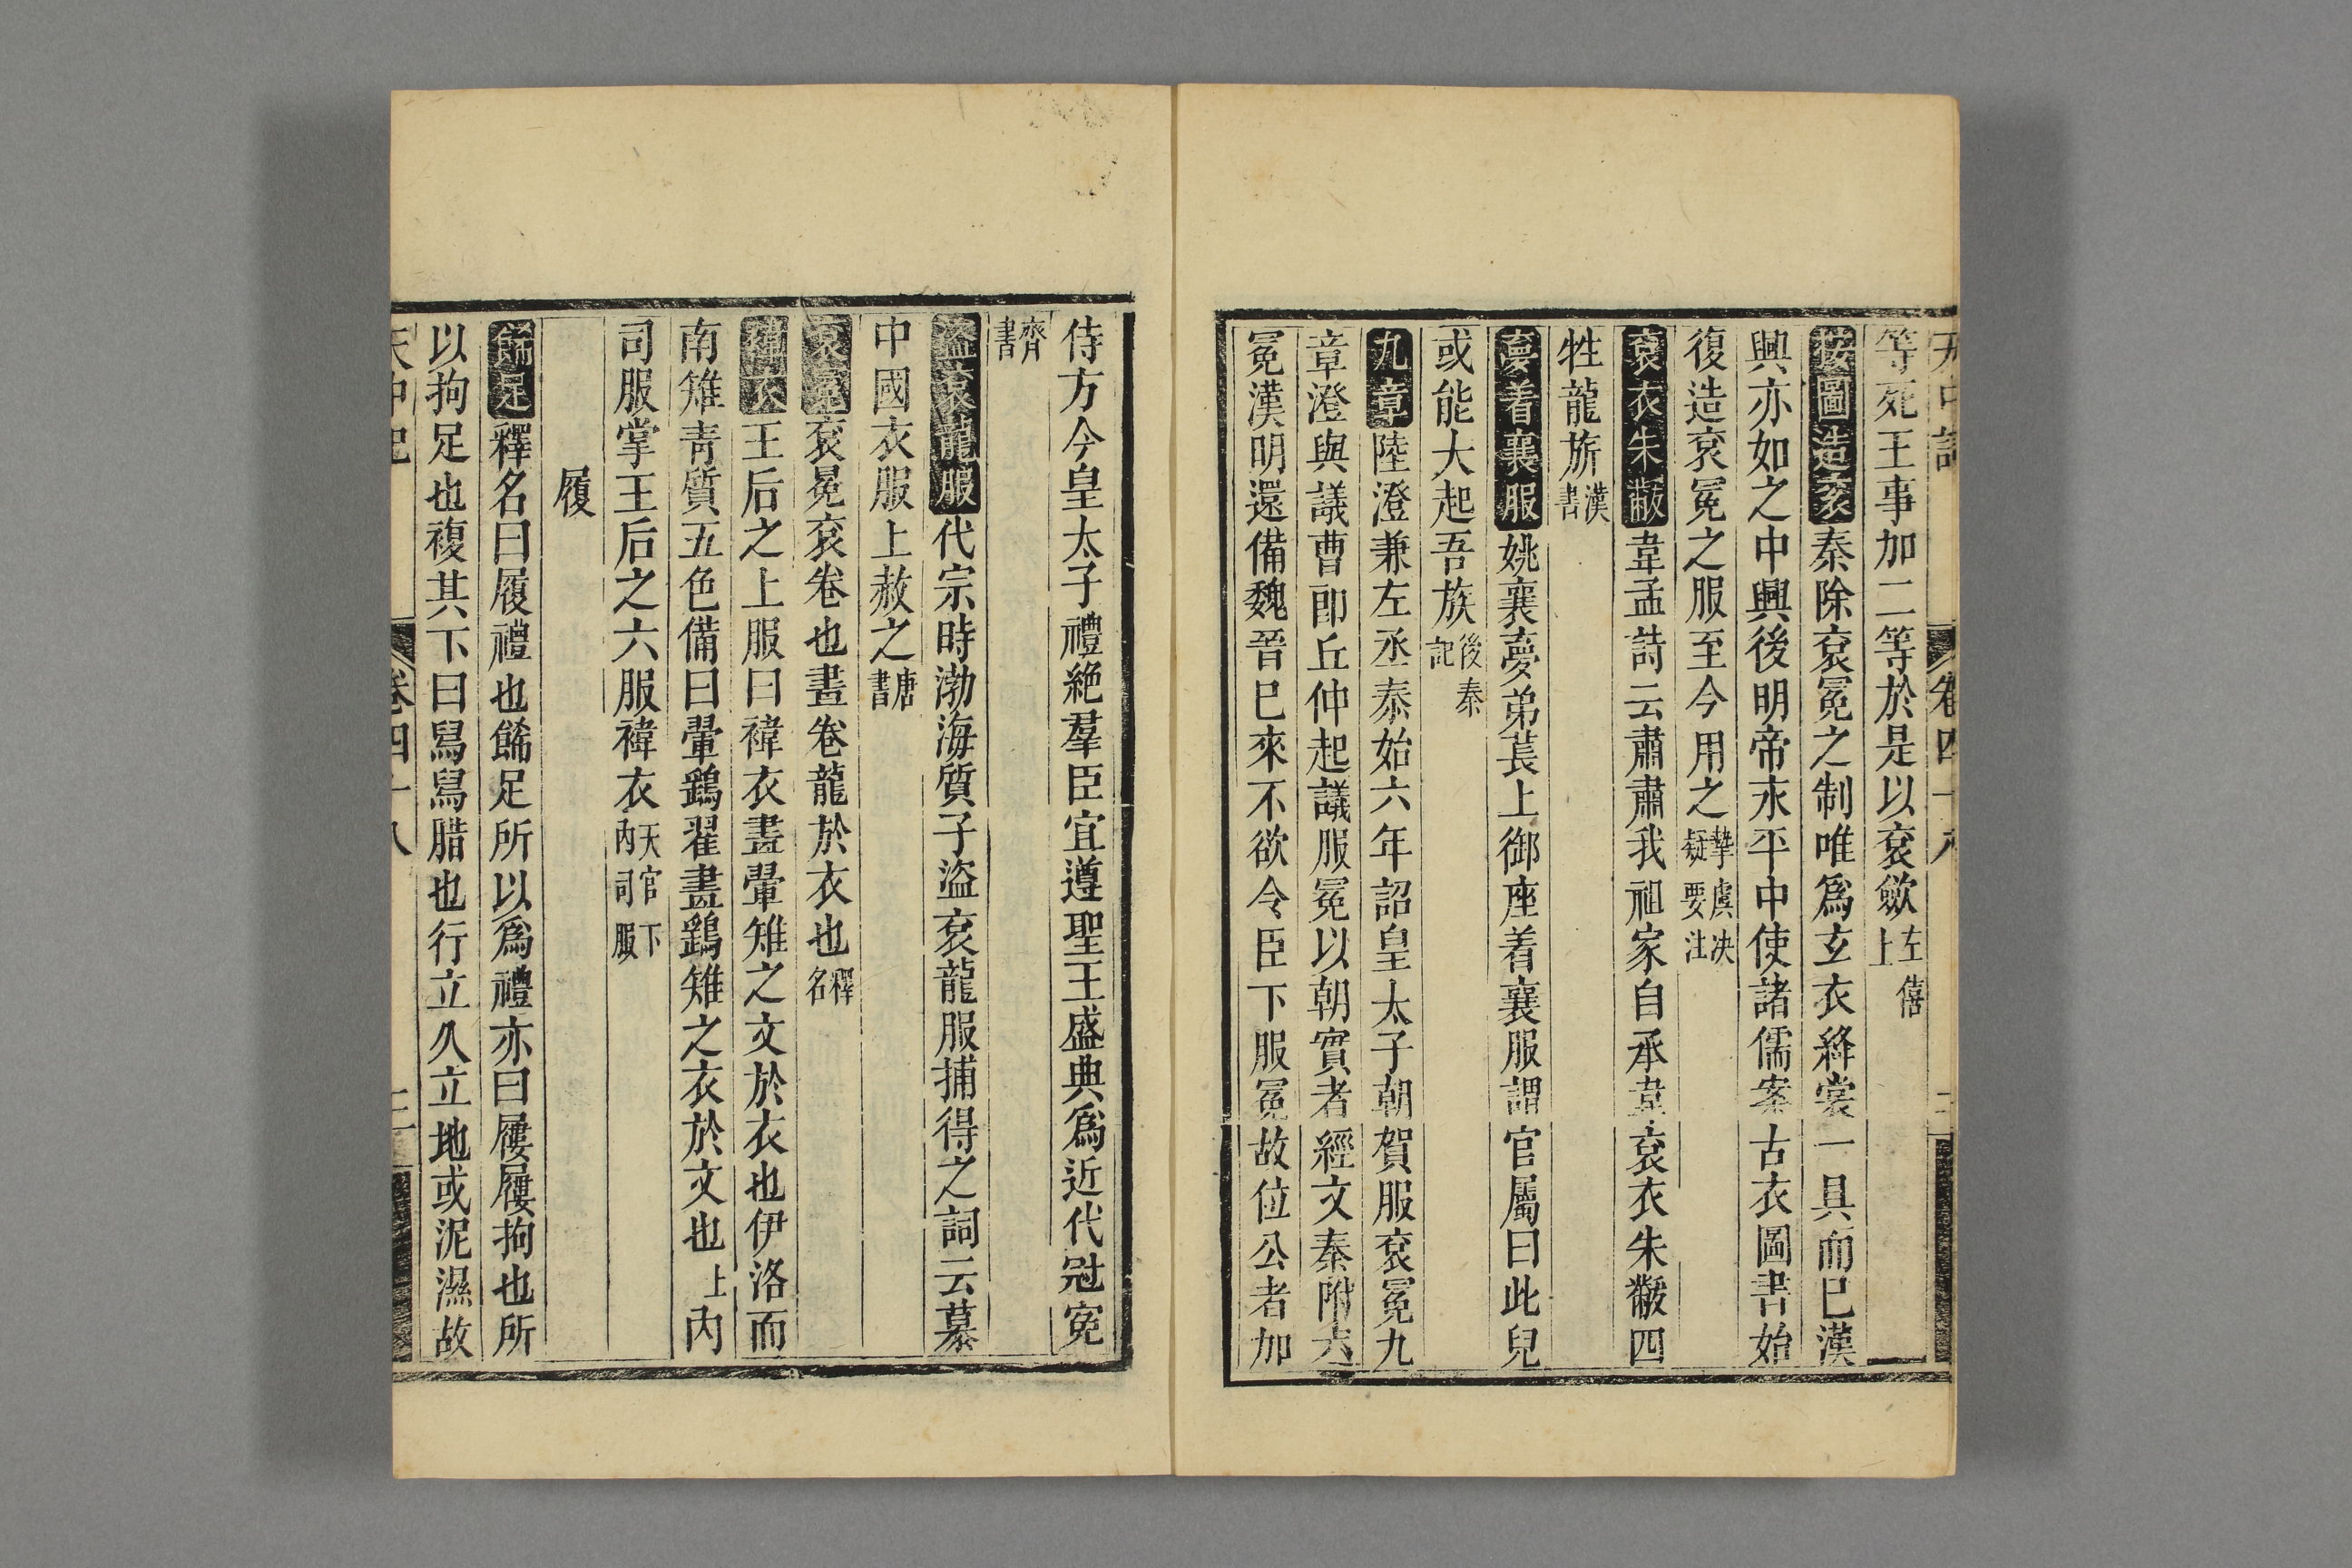 等死王事加二等於是以袞斂左僖上
按圖造袞秦除袞冕之制唯爲玄衣絳裳一具而已漢
興亦如之中興後明帝永平中使諸儒案古衣圖書始
復造袞冕之服至今用之摯虞决疑要注
袞衣朱黻韋孟詩云肅肅我祖家自承韋袞衣朱黻四
牲龍旂漢書
夢着襄服姚襄夢弟萇上御座着襄服謂官屬曰此兒
或能大起吾族後秦記
九章陸澄兼左丞泰始六年詔皇太子朝賀服袞冕九
章澄與議曹郎丘仲起議服冕以朝實者經文秦附六
冕漢明還備魏晉巳來不欲令臣下服冕故位公者加
侍方今皇太子禮絶羣臣宜遵聖王盛典爲近代冠冕
齊書
盜袞龍服代宗時渤海質子盜袞龍服捕得之詞云慕
中國衣服上赦之唐書
袞冕袞冕袞卷也畫卷龍於衣也釋名
褘衣王后之上服曰褘衣畫翬雉之文於衣也伊洛而
南雉青質五色備曰翬鷂翟畫鷂雉之衣於文也上內
司服掌王后之六服褘衣天官下內司服
履
飾足釋名曰履禮也餙足所以爲禮亦曰屨屨拘也所
以拘足也複其下曰舄舄腊也行立久立地或泥濕故
天中記 卷四十八